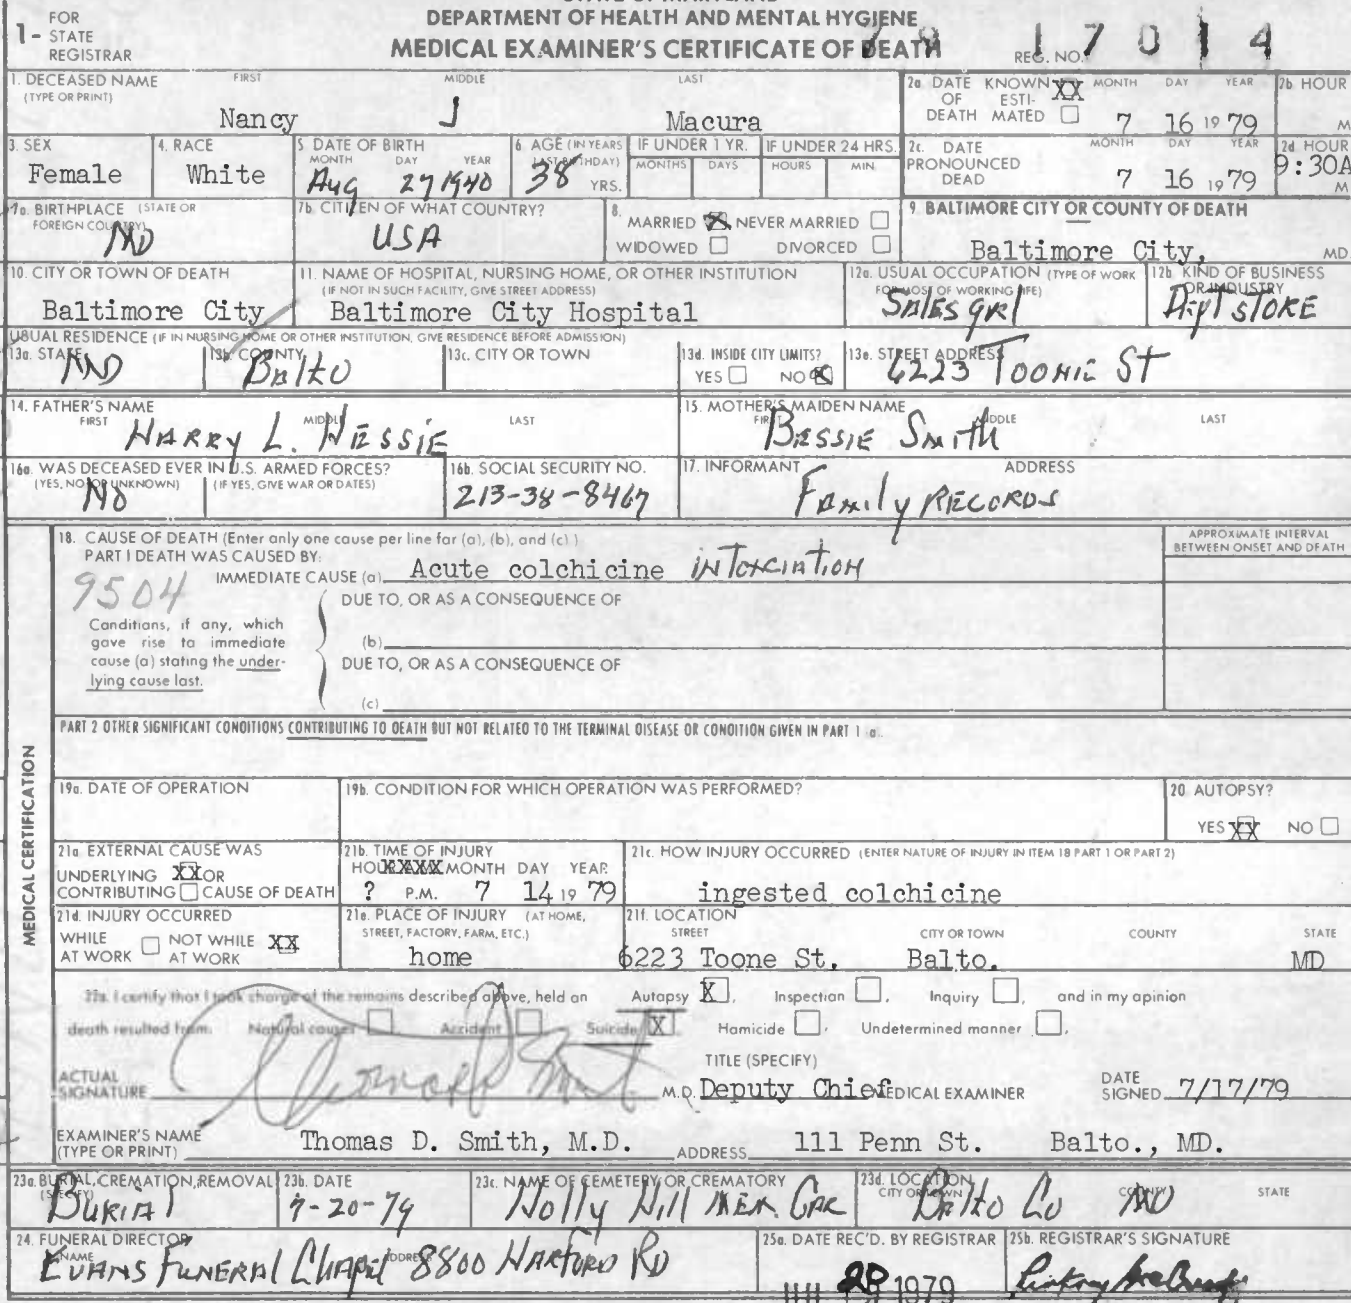 1- FOR
STATE
REGISTRAR
DEPARTMENT OF HEALTH AND MENTAL HYGIENE
MEDICAL EXAMINER'S CERTIFICATE OF DEATH
REG. NO. 17014
1. DECEASED NAME FIRST MIDDLE LAST
(TYPE OR PRINT)
Nancy J Macura
2a. DATE KNOWN XX MONTH DAY YEAR 2b. HOUR
OF ESTI-
DEATH MATED 7 16 1979 M
3. SEX 4. RACE 5. DATE OF BIRTH 6. AGE (IN YEARS IF UNDER 1 YR. IF UNDER 24 HRS.
MONTH DAY YEAR LAST BIRTHDAY) MONTHS DAYS HOURS MIN.
Female White Aug 27 1940 38 YRS.
2c. DATE MONTH DAY YEAR 2d. HOUR
PRONOUNCED
DEAD 7 16 1979 9:30A M
7a. BIRTHPLACE (STATE OR
FOREIGN COUNTRY)
MD
7b. CITIZEN OF WHAT COUNTRY?
USA
8. MARRIED X NEVER MARRIED
WIDOWED DIVORCED
9. BALTIMORE CITY OR COUNTY OF DEATH
Baltimore City, MD.
10. CITY OR TOWN OF DEATH
Baltimore City
11. NAME OF HOSPITAL, NURSING HOME, OR OTHER INSTITUTION
(IF NOT IN SUCH FACILITY, GIVE STREET ADDRESS)
Baltimore City Hospital
12a. USUAL OCCUPATION (TYPE OF WORK
FOR MOST OF WORKING LIFE)
Sales girl
12b. KIND OF BUSINESS
OR INDUSTRY
Dept store
USUAL RESIDENCE (IF IN NURSING HOME OR OTHER INSTITUTION, GIVE RESIDENCE BEFORE ADMISSION)
13a. STATE 13b. COUNTY 13c. CITY OR TOWN 13d. INSIDE CITY LIMITS? 13e. STREET ADDRESS
MD Balto YES NO X 6223 Toonie St
14. FATHER'S NAME
FIRST MIDDLE LAST
Harry L. Hessie
15. MOTHER'S MAIDEN NAME
FIRST MIDDLE LAST
Bessie Smith
16a. WAS DECEASED EVER IN U.S. ARMED FORCES?
(YES, NO OR UNKNOWN) (IF YES, GIVE WAR OR DATES)
No
16b. SOCIAL SECURITY NO.
213-38-8467
17. INFORMANT ADDRESS
Family Records
18. CAUSE OF DEATH (Enter only one cause per line for (a), (b), and (c).)
PART I DEATH WAS CAUSED BY:
APPROXIMATE INTERVAL
BETWEEN ONSET AND DEATH
9504
IMMEDIATE CAUSE (a) Acute colchicine intoxciation
DUE TO, OR AS A CONSEQUENCE OF
Conditions, if any, which
gave rise to immediate
cause (a) stating the under-
lying cause last.
(b)
DUE TO, OR AS A CONSEQUENCE OF
(c)
PART 2 OTHER SIGNIFICANT CONDITIONS CONTRIBUTING TO DEATH BUT NOT RELATED TO THE TERMINAL DISEASE OR CONDITION GIVEN IN PART 1 a.
MEDICAL CERTIFICATION
19a. DATE OF OPERATION
19b. CONDITION FOR WHICH OPERATION WAS PERFORMED?
20. AUTOPSY?
YES XX NO
21a. EXTERNAL CAUSE WAS
UNDERLYING XX OR
CONTRIBUTING CAUSE OF DEATH
21b. TIME OF INJURY
HOUR XXXX MONTH DAY YEAR
? P.M. 7 14 1979
21c. HOW INJURY OCCURRED (ENTER NATURE OF INJURY IN ITEM 18 PART 1 OR PART 2)
ingested colchicine
21d. INJURY OCCURRED
WHILE NOT WHILE XX
AT WORK AT WORK
21e. PLACE OF INJURY (AT HOME,
STREET, FACTORY, FARM, ETC.)
home
21f. LOCATION
STREET CITY OR TOWN COUNTY STATE
6223 Toone St. Balto. MD
22a. I certify that I took charge of the remains described above, held an Autopsy X, Inspection , Inquiry , and in my opinion
death resulted from. Natural causes Accident Suicide X Homicide , Undetermined manner ,
TITLE (SPECIFY)
ACTUAL
SIGNATURE M.D. Deputy Chief MEDICAL EXAMINER
DATE
SIGNED 7/17/79
EXAMINER'S NAME
(TYPE OR PRINT) Thomas D. Smith, M.D. ADDRESS 111 Penn St. Balto., MD.
23a. BURIAL, CREMATION, REMOVAL 23b. DATE 23c. NAME OF CEMETERY OR CREMATORY 23d. LOCATION
(SPECIFY) CITY OR TOWN COUNTY STATE
Burial 7-20-79 Holly Hill Mem. Gar Balto Co MD
24. FUNERAL DIRECTOR
NAME ADDRESS
Evans Funeral Chapel 8800 Harford Rd
25a. DATE REC'D. BY REGISTRAR
1979
25b. REGISTRAR'S SIGNATURE